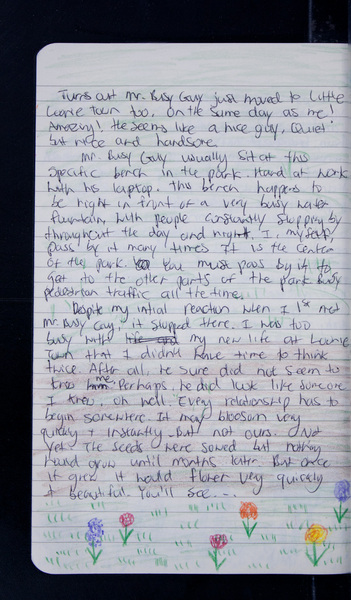 Turns out Mr. Busy Guy just moved to Little
Loorie Town too, on the same day as me!
Amazing! He seems like a nice guy. Quiet
but nice and handsome.
Mr. Busy Guy usually sit at this
specific bench in the park. Hard at work
with his laptop. This bench happens to
be right in front of a very busy water
fountain with people constantly stopping by
throughout the day and night. I, myself,
pass by it many times. It is the center
of the park. You must pass by it to
get to the other parts of the park. Busy
pedestrian traffic all the time.
Despite my initial reaction when I 1st met
Mr. Busy Guy, it stopped there. I was too
busy with my new life at Loorie
Town that I didn't have time to think
twice. After all, he sure did not seem to
know me. Perhaps, he did look like someone
I knew, oh well. Every relationship has to
begin somewhere. It may blossom very
quickly + instantly. But not ours. Not
yet. The seeds were sowed but nothing
would grow until months later. But once
it grew it would flower very quickly
+ beautiful. You'll see....